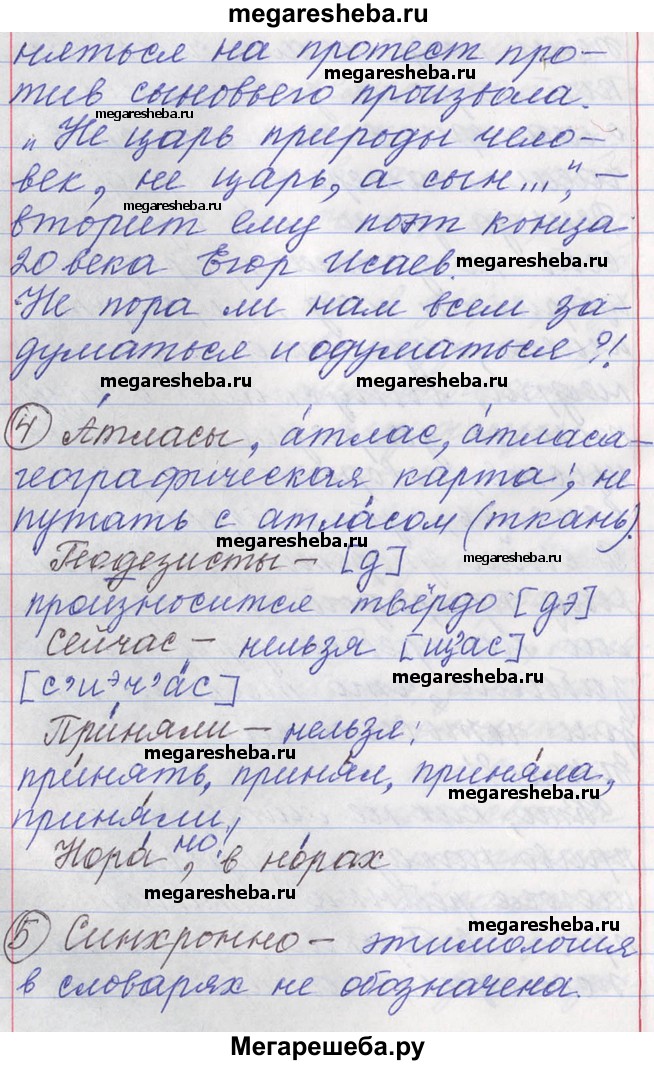 megaresheba.ru
няться на протест про-
megaresheba.ru
тив сыновьего произвола.
megaresheba.ru
„Не царь природы чело-
век, не царь, а сын...", –
megaresheba.ru
вторит ему поэт конца
20 века Егор Исаев.
megaresheba.ru
Не пора ли нам всем за-
думаться и одуматься?!
megaresheba.ru
④ А́тласы, а́тлас, а́тласа –
географическая карта; не
путать с атла́сом (ткань).
megaresheba.ru
Геодезисты – [д]
megaresheba.ru
произносится твёрдо [дэ]
Сейчас – нельзя [щ'ас]
megaresheba.ru
[с'иэч'а́с]
При́няли – нельзя!
megaresheba.ru
приня́ть, при́нял, приняла́,
megaresheba.ru
при́няли!
Нора́, но: в но́рах
megaresheba.ru
⑤ Синхронно – этимология
megaresheba.ru
в словарях не обозначена.
Мегарешеба.ру